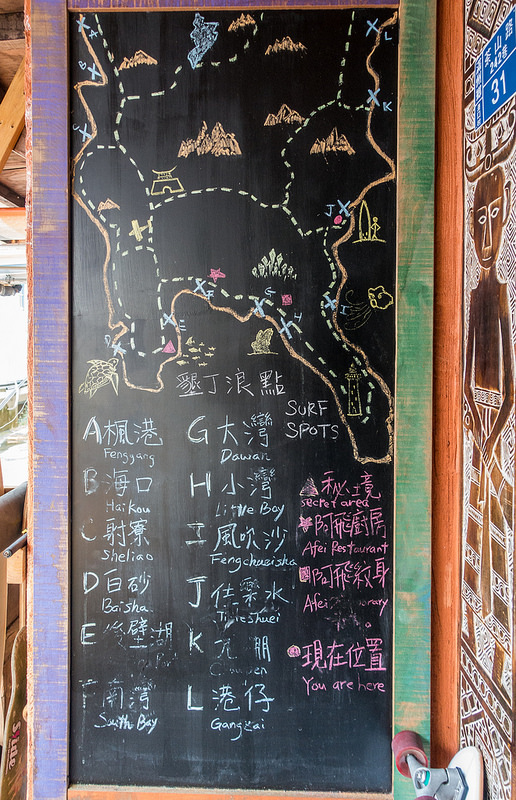 A
B
C
D
E
F
G
H
I
J
K
L
墾丁浪點
SURF
SPOTS
A 楓港
Fengyang
B 海口
Haikou
C 射寮
Sheliao
D 白砂
Baisha
E 後壁湖
F 南灣
South Bay
G 大灣
Dawan
H 小灣
Little Bay
I 風吹沙
Fengchueisha
J 佳樂水
K
L 港仔
Gangzai
秘境
secret area
阿飛廚房
Afei Restaurant
阿飛紋身
Afei
現在位置
You are here
茶山路
242巷
31